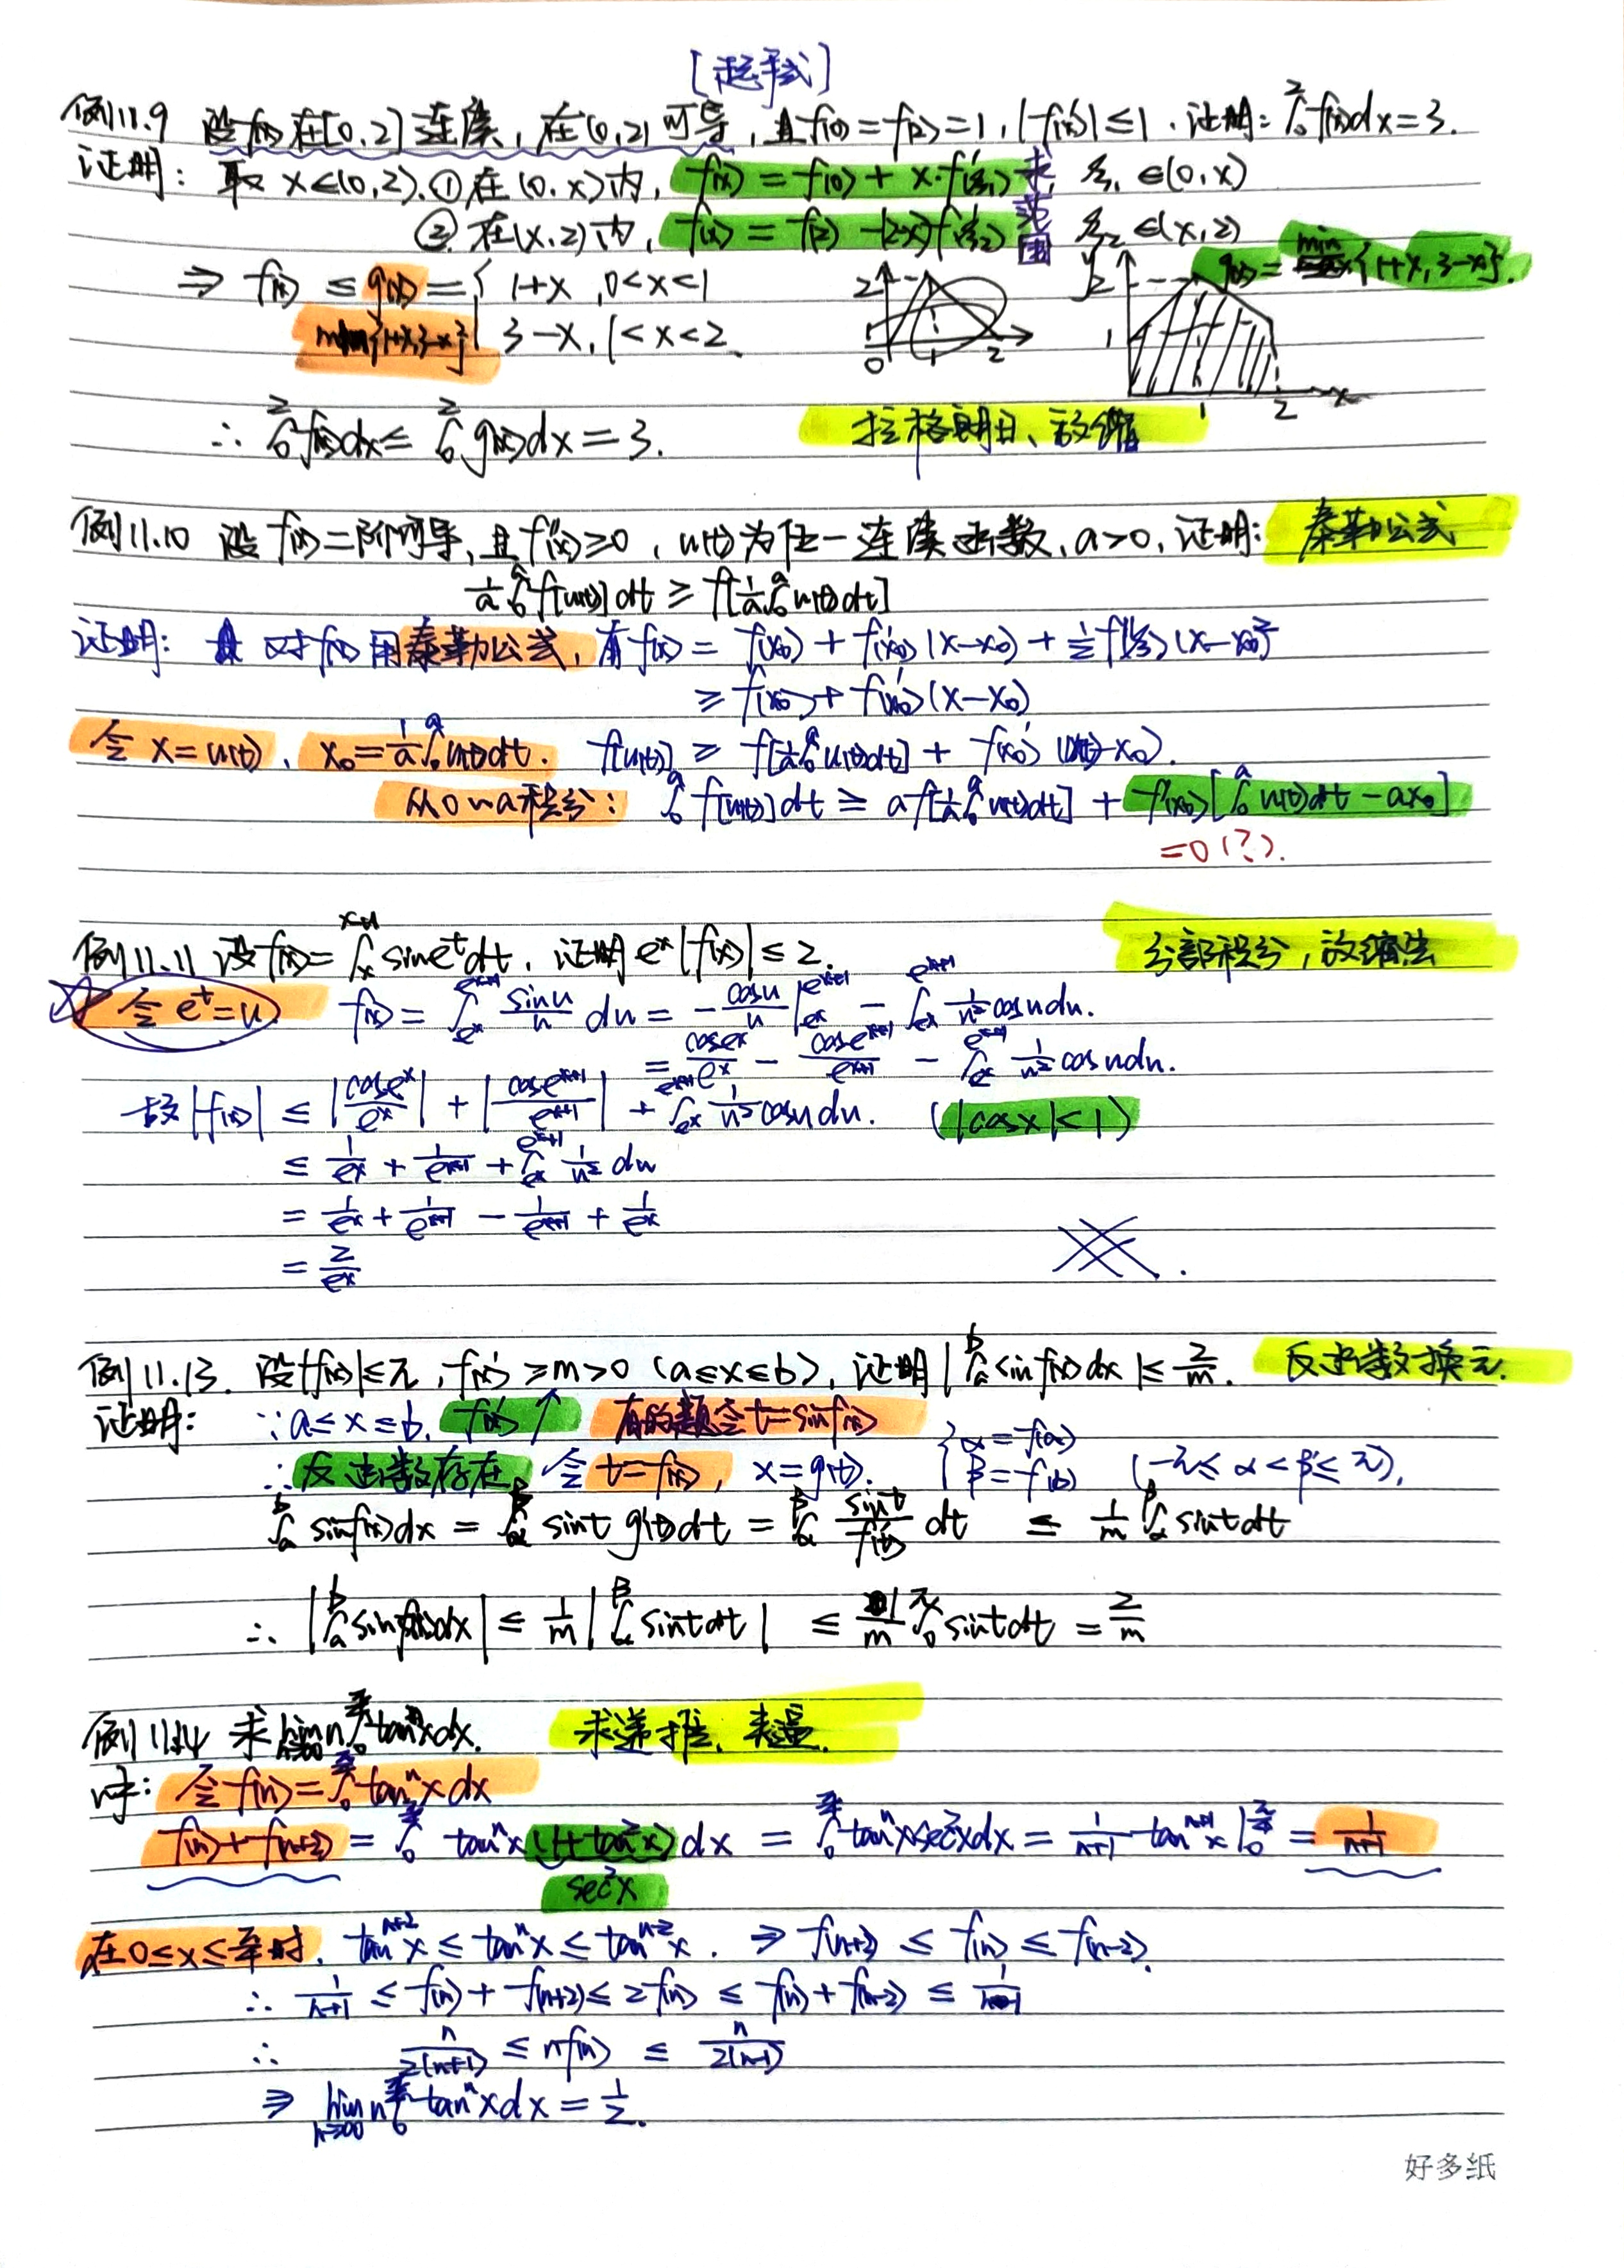 [起手式]
例11.9 设f(x)在[0,2]连续,在(0,2)可导,且f(0)=f(2)=1,|f'(x)|≤1.证明:∫₀²f(x)dx=3.
证明: 取x∈(0,2).①在(0,x)内, f(x)=f(0)+x·f'(ξ₁) 求 ξ₁∈(0,x)
②在(x,2)内, f(x)=f(2)-(2-x)f'(ξ₂) 范围 ξ₂∈(x,2)
⇒ f(x)≤g(x)={ 1+x, 0<x<1 2 1 0 1 2 y 2 1 g(x)=min{1+x,3-x}.
min{1+x,3-x} 3-x, 1<x<2. 1 2 x
∴ ∫₀²f(x)dx≤∫₀²g(x)dx=3. 拉格朗日、放缩
例11.10 设f(x)二阶可导,且f''(x)≥0,u(t)为任一连续函数,a>0,证明: 泰勒公式
1/a ∫₀ᵃf[u(t)]dt≥f[1/a ∫₀ᵃu(t)dt]
证明: 对f(x)用泰勒公式,有f(x)=f(x₀)+f'(x₀)(x-x₀)+½f''(ξ)(x-x₀)²
≥f(x₀)+f'(x₀)(x-x₀)
令x=u(t)、x₀=1/a ∫₀ᵃu(t)dt. f[u(t)]≥f[1/a ∫₀ᵃu(t)dt]+f(x₀)'(u(t)-x₀).
从0~a积分: ∫₀ᵃf[u(t)]dt≥af[1/a ∫₀ᵃu(t)dt]+f'(x₀)[∫₀ᵃu(t)dt-ax₀]
=0(?).
例11.11 设f(x)=∫ₓ^(x+1) sin e^t dt,证明e^x|f(x)|≤2. 分部积分,放缩法
☆ 令e^t=u f(x)=∫_(e^x)^(e^(x+1)) sinu/u du=-cosu/u|_(e^x)^(e^(x+1))-∫_(e^x)^(e^(x+1)) 1/u² cosudu.
=cose^x/e^x-cose^(x+1)/e^(x+1)-∫_(e^x)^(e^(x+1)) 1/u² cosudu.
故|f(x)|≤|cose^x/e^x|+|cose^(x+1)/e^(x+1)|+∫_(e^x)^(e^(x+1)) 1/u² cosudu. (|cosx|<1)
≤1/e^x+1/e^(x+1)+∫_(e^x)^(e^(x+1)) 1/u² du
=1/e^x+1/e^(x+1)-1/e^(x+1)+1/e^x
=2/e^x
例11.13. 设|f(x)|≤π,f(x)'≥m>0(a≤x≤b),证明|∫ₐᵇsinf(x)dx|≤2/m. 反函数换元.
证明: ∵a≤x≤b. f(x)↑ 有的题令t=sinf(x) {α=f(a)
∴反函数存在, 令t=f(x), x=g(t). β=f(b) (-π≤α<β≤π),
∫ₐᵇsinf(x)dx=∫_α^β sint g'(t)dt=∫_α^β sint/f'(t) dt ≤ 1/m ∫_α^β sintdt
∴|∫ₐᵇsinf(x)dx|≤1/m|∫_α^β sintdt|≤1/m ∫₀^π sintdt=2/m
例11.14 求lim n∫₀^(π/4) tanⁿxdx. 求递推、夹逼.
证: 令f(n)=∫₀^(π/4) tanⁿxdx
f(n)+f(n+2)=∫₀^(π/4) tanⁿx(1+tan²x)dx=∫₀^(π/4) tanⁿxsec²xdx=1/(n+1) tan^(n+1)x|₀^(π/4)=1/(n+1)
sec²x
在0≤x≤π/4时, tan^(n+2)x≤tanⁿx≤tan^(n-2)x. ⇒f(n+2)≤f(n)≤f(n-2).
∴ 1/(n+1)≤f(n)+f(n+2)≤2f(n)≤f(n)+f(n-2)≤1/(n-1)
∴ n/2(n+1)≤nf(n)≤n/2(n-1)
⇒ lim_(n→∞) n∫₀^(π/4) tanⁿxdx=1/2.
好多纸